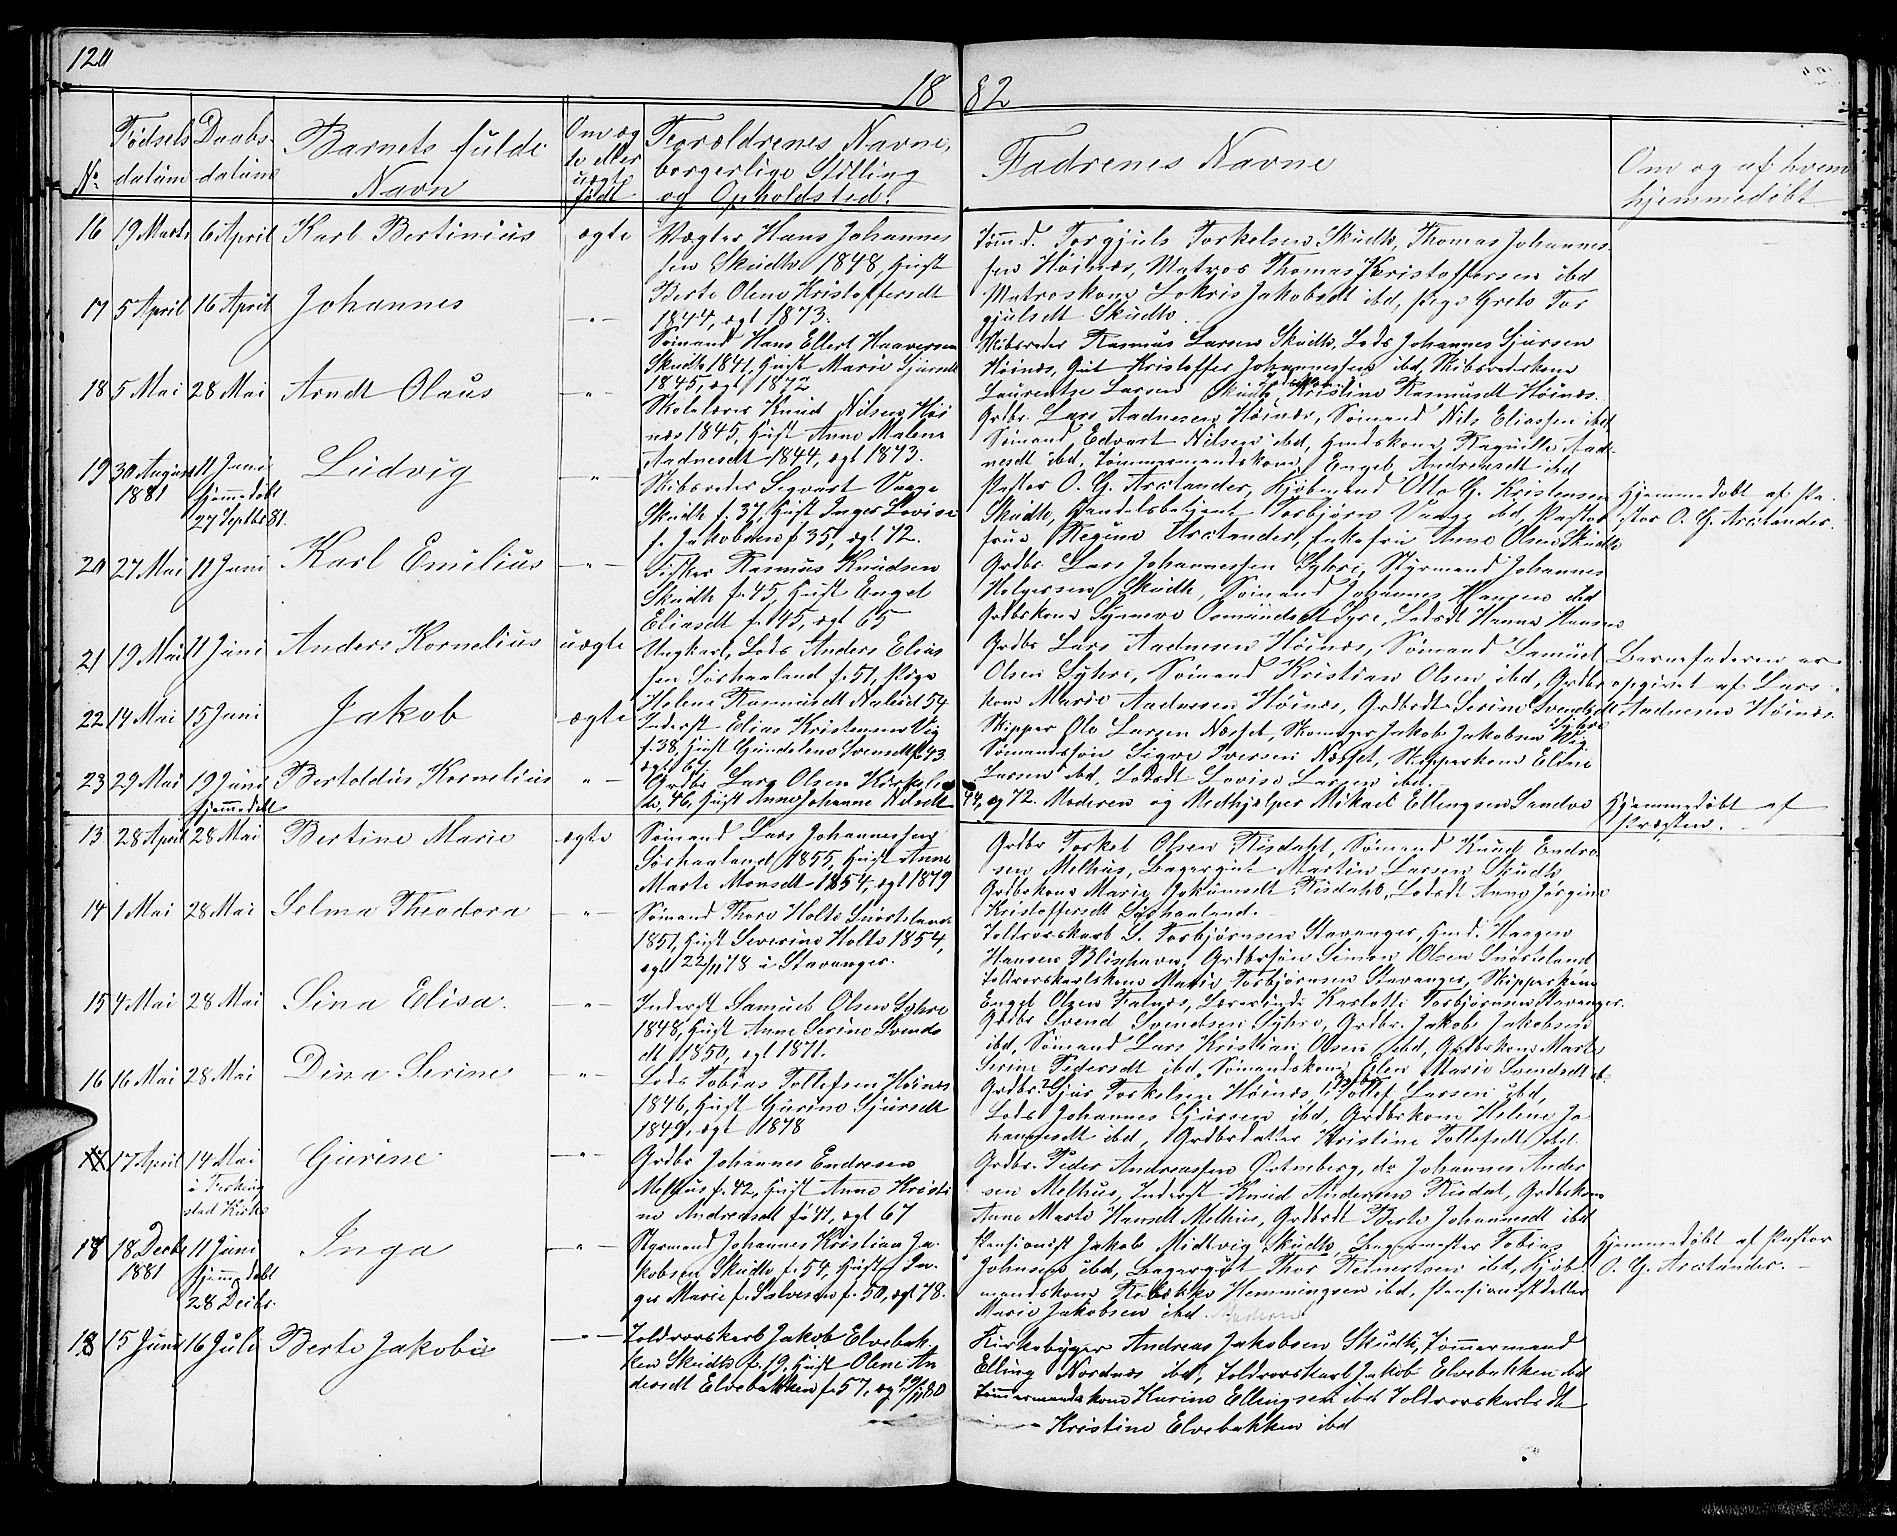 120
18 82
No.
Fødsels
datum
Daabs-
datum
Barnets fulde
Navn
Om æg
te eller
uægte
født
Forældrenes Navne,
borgerlige Stilling
og Opholdsted.
Fadrenes Navne
Om og af hvem
hjemmedøbt
16 19 Marts 6 April Karl Bertinius ægte
Vægter Hans Johannes
sen Skudh 1848, Hust
Berte Olene Kristoffersdt
1844, ægt 1873.
Tømd. Torgjuls Torkelsen Skudh, Thomas Johannes-
sen Høinæs, Matros Thomas Kristoffersen ibd
Matroskone Jakobsdt ibd, Pige Grete Tor
gjulsdt Skudh
17 5 April 16 April Johannes —"—
Sømand Hans Ellert Haaversen
Skudh 1841, Hust Marie Sjursdt
1845, ægt 1872
Skibsreder Rasmus Larsen Skudh, Lods Johannes Sjursen
Høinæs, Gut Kristoffer Johannessen ibd, Skibsrederkone
Laurentse Larsen Skudh, Kristine Rasmusdt Høinæs.
18 5 Mai 28 Mai Arndt Olaus —"—
Skolelærer Knud Nilsen Høi
næs 1845, Hust Anne Malene
Aadnesdt 1844, ægt 1873.
Grdbr. Lars Aadnesen Høinæs, Sømand Nils Eliassen ibd
Sømand Edvart Nilsen ibd, Ragnilde Aad-
nesdt ibd, Tømmermandskone Engeb. Andreasdt ibd
19 30 August 1881 11 Juni Hjemmedøbt 27 Septbr 81. Ludvig —"—
Skibsreder Segvart Vaage
Skudh f. 37, Hust Inger Lovise
f. Jakobsen f 35, ægt 72.
Pastor O. G. Arctander, Kjøbmand Otto G. Kristensen
Skudh, Handelsbetjent Torbjørn Vaage ibd, Pastor
frue Regine Arctander, Enkefru Anne Olsen Skudh
Hjemmedøbt af Pa-
stor O. G. Arctander.
20 27 Mai 11 Juni Karl Emilius —"—
Fisker Rasmus Knudsen
Skudh f. 45, Hust Engel
Eliasdt f. 45, ægt 65
Grdbr. Lars Johannessen Syhre, Styrmand Johannes
Holgersen Skudh, Sømand Johannes Hansen ibd
Grdbrkone Synneve Osmundsdt Syre, Lodsdt Hanne Hansen
21 19 Mai 11 Juni Anders Kornelius uægte
Ungkarl, Lods Anders Elias
sen Sørhaaland f. 51, Pige
Helene Rasmusdt 54
Grdbr Lars Aadnesen Høinæs, Sømand Samuel
Olsen Syhre, Sømand Kristian Olsen ibd, Grdbr
kone Marie Aadnesen Høinæs, Grdbrdt Serine Svendsdt
Syhre
Barnefaderen er
opgivet af Lars
Aadnesen Høinæs.
22 14 Mai 15 Juni Jakob ægte
Inderst Elias Kristensen Vig
f. 38, Hust Gundelene Svensdt f. 43
ægt 67
Skipper Ole Larsen Næsset, Skomager Jakob Jakobsen Vig,
Sømandssøn Sigve Iversen Næsset, Skipperkone Eline
Larsen ibd, Lodsdt Lovise Larsen ibd.
23 29 Mai 19 Juni hjemmedøbt Bertoldus Kornelius —"—
Grdbr Lars Olsen
46, Hust Anne Johanne Nilsdt
44, æg 72. Moderen og Medhjelper Mikael Ellingsen Sandve
Hjemmedøbt af
Præsten.
13 28 April 28 Mai Bertine Marie ægte
Sømand Lars Johannessen
Sørhaaland 1855, Hust Anne
Marte Monsdt 1854, ægt 1879
Grdbr Torkel Olsen Risdahl, Sømand Knud Endre
sen Melhus, Bagergut Martin Larsen Skudh
Grdbrkone Marie Jokumsdt Risdahl, Lodsdt Anne Jørgine
Kristoffersdt Sørhaaland.
14 1 Mai 28 Mai Selma Theodora —"—
Sømand Thore Holte Snørteland
1851, Hust Severine Holte 1854,
ægt 22/11 78 i Stavanger.
Toldrorskarl S. Torbjørnsen Stavanger, Hmd. Haagen
Hansen Blixhavn, Grdbrsøn Simon Olsen Snørteland
Toldrorskarlskone Marie Torbjørnsen Stavanger, Skipperskone
Engel Olsen Falnæs, Lærerinde Karlotte Torbjørnsen Stavanger.
15 4 Mai 28 Mai Sina Elisa. —"—
Inderst Samuel Olsen Syhre
1848, Hust Anne Serine Svends
dt 1850, ægt 1871.
Grdbr Svend Svendsen Syhre, Grdbr. Jakob Jakobsen
ibd, Sømand Lars Kristian Olsen ibd, Grdbrkone Marte
Serine Pedersdt ibd, Sømandskone Elen Marie Svendsdt ib.
16 16 Mai 28 Mai Dina Serine —"—
Lods Tobias Tollefsen Høinæs
1846, Hust Gurine Sjursdt
1849, ægt 1878
Grdbr. Sjur Torkelsen Høinæs, Tollef Larsen ibd,
Lods Johannes Sjursen ibd, Grdbrkone Helene Jo
hannesdt ibd, Grdbrdatter Kristine Tollefsdt ibd
17 17 April 14 Mai i Ferking stad Kirke Gurine —"—
Grdbr Johannes Endresen
Melhus f. 42, Hust Anne Kristi
ne Andreasdt fø 41, ægt 67
Grdbr. Peder Andreassen Østneberg, do Johannes Ander
sen Melhus, Inderst Knud Andersen Risdal, Grdbrkone
Anne Marte Hansdt Melhus, Grdbrdt Berte Johannesdt ibd
18 18 Decbr 1881 11 Juni Hjemmedøbt 28 Decbr. Inga —"—
Styrmand Johannes Kristian Ja-
kobsen Skudh f. 54, Hust In-
ger Marie f. Salvesen f. 50, ægt 78.
Pensionist Jakob Midtvig Skudh, Bagermester Tobias
Johnsen ibd, Bagergut Thor Reinertsen ibd, Kjøb-
mandskone Rebekka Hemmingsen ibd, Pensionistdatter
Marie Jakobsen ibd. Moderen
Hjemmedøbt af Pastor
O. G. Arctander.
18 15 Juni 16 Juli Berte Jakobie —"—
Toldrorskarl Jakob Elvebak
ken Skudh f. 19, Hust Olene An
dersdt Elvebakken f. 57, æg 19/11 80
Kirkebygger Andreas Jakobsen Skudh, Tømmermand
Elling Nordnes ibd, Toldrorskarl Jakob Elvebakken ibd
Tømmermandskone Karine Ellingsen ibd Toldrorskarlsdt
Kristine Elvebakken ibd